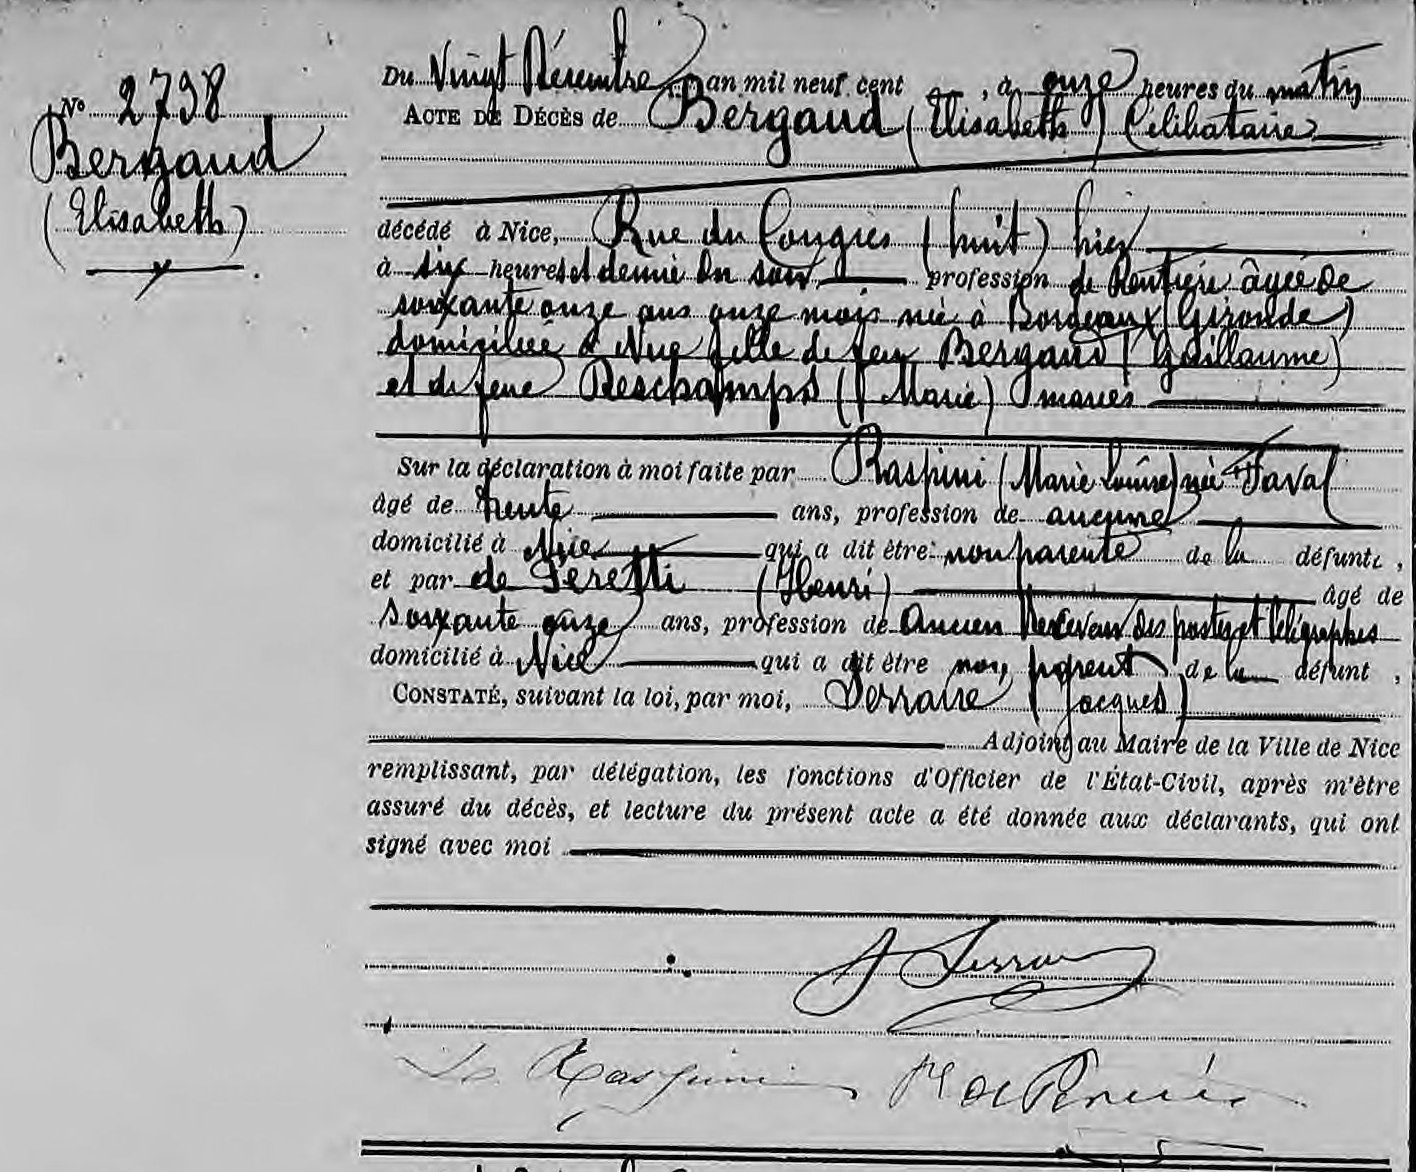 N° 2798
Bergaud
(Elisabeth)
Du Vingt Décembre an mil neuf cent , à onze heures du matin
ACTE DE DÉCÈS de Bergaud (Elisabeth) Célibataire
décédé à Nice, Rue du Congrès (huit) hier
à six heures et demie du soir profession de Rentière âgée de
soixante onze ans onze mois née à Bordeaux (Gironde)
domiciliée à Nice fille de feu Bergaud (Guillaume)
et de feue Deschamps (Marie) mariés
Sur la déclaration à moi faite par Raspini (Marie Louise) née Faval
âgé de trente ans, profession de aucune
domicilié à Nice qui a dit être non parente de la défunte,
et par de Peretti (Henri) âgé de
soixante onze ans, profession de Ancien Receveur des postes et télégraphes
domicilié à Nice qui a dit être non parent de la défunt ,
CONSTATÉ, suivant la loi, par moi, Serraire (Jacques)
Adjoint au Maire de la Ville de Nice
remplissant, par délégation, les fonctions d'Officier de l'État-Civil, après m'être
assuré du décès, et lecture du présent acte a été donnée aux déclarants, qui ont
signé avec moi
Raspini